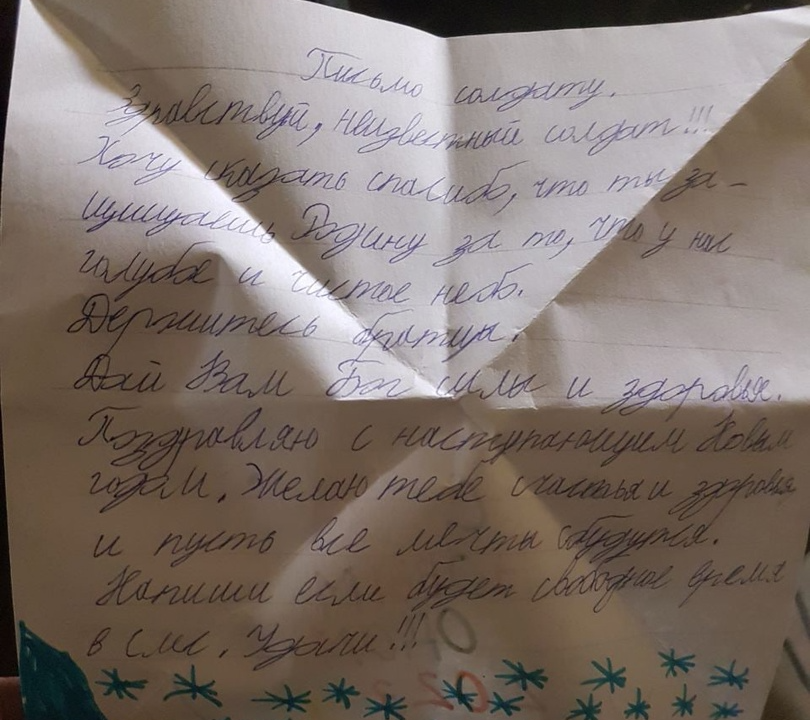 Письмо солдату.
Здравствуй, неизвестный солдат!!!
Хочу сказать спасибо, что ты за-
щищаешь Родину за то, что у нас
голубое и чистое небо.
Держитесь братцы.
Дай Вам Бог силы и здоровья.
Поздравляю с наступающим Новым
годом. Желаю тебе счастья и здоровья
и пусть все мечты сбудутся.
Напиши если будет свободное время
в смс. Удачи!!!